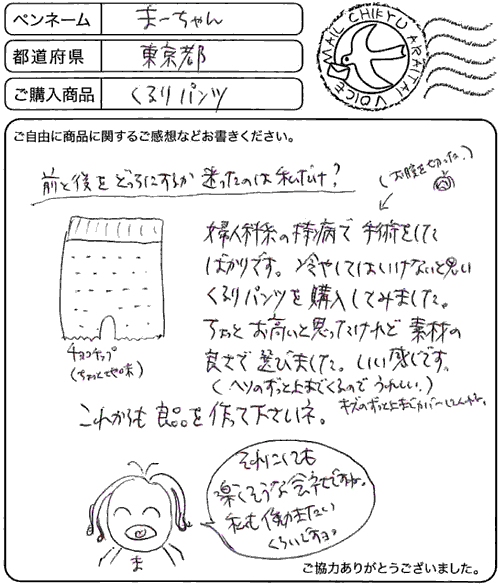 ペンネーム まーちゃん
都道府県 東京都
ご購入商品 くるりパンツ
MAIL CHIKYU ARAITAI VOICE
ご自由に商品に関するご感想などお書きください。
前と後をどっちにするか迷ったのは私だけ?
(お腹を切った。)
婦人科系の病で手術をした
ばかりです。冷やしてはいけないと思い
くるりパンツを購入してみました。
ちょっとお高いと思ったけれど素材の
良さで選びました。いい感じです。
(ヘソのずっと上までくるのでうれしい。)
キズのずっと上までカバーしてくれる。
チョンチップ
(ちょっと地味)
これからも良品を作って下さいネ。
それにしても
楽しそうな会社ですね。
私も働きたい
くらいですョ。
ま
ご協力ありがとうございました。